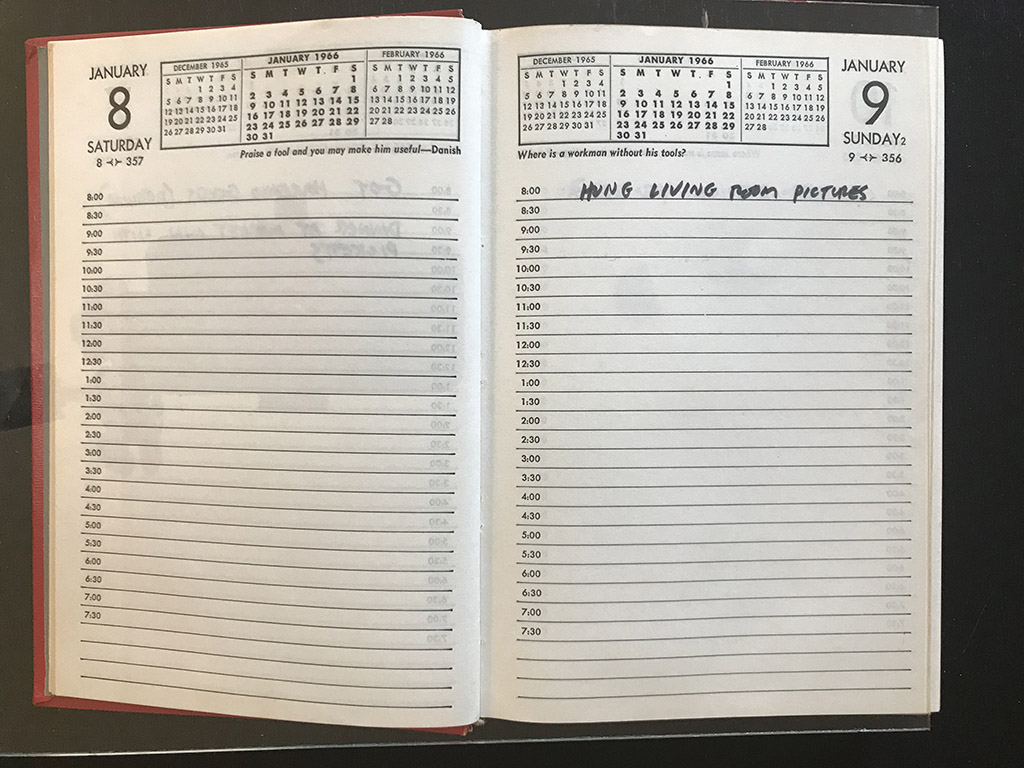 JANUARY
8
SATURDAY
8 -<>- 357
DECEMBER 1965
S M T W T F S
1 2 3 4
5 6 7 8 9 10 11
12 13 14 15 16 17 18
19 20 21 22 23 24 25
26 27 28 29 30 31
JANUARY 1966
S M T W T F S
1
2 3 4 5 6 7 8
9 10 11 12 13 14 15
16 17 18 19 20 21 22
23 24 25 26 27 28 29
30 31
FEBRUARY 1966
S M T W T F S
1 2 3 4 5
6 7 8 9 10 11 12
13 14 15 16 17 18 19
20 21 22 23 24 25 26
27 28
Praise a fool and you may make him useful—Danish
8:00
8:30
9:00
9:30
10:00
10:30
11:00
11:30
12:00
12:30
1:00
1:30
2:00
2:30
3:00
3:30
4:00
4:30
5:00
5:30
6:00
6:30
7:00
7:30
DECEMBER 1965
S M T W T F S
1 2 3 4
5 6 7 8 9 10 11
12 13 14 15 16 17 18
19 20 21 22 23 24 25
26 27 28 29 30 31
JANUARY 1966
S M T W T F S
1
2 3 4 5 6 7 8
9 10 11 12 13 14 15
16 17 18 19 20 21 22
23 24 25 26 27 28 29
30 31
FEBRUARY 1966
S M T W T F S
1 2 3 4 5
6 7 8 9 10 11 12
13 14 15 16 17 18 19
20 21 22 23 24 25 26
27 28
JANUARY
9
SUNDAY2
9 -<>- 356
Where is a workman without his tools?
8:00 HUNG LIVING ROOM PICTURES
8:30
9:00
9:30
10:00
10:30
11:00
11:30
12:00
12:30
1:00
1:30
2:00
2:30
3:00
3:30
4:00
4:30
5:00
5:30
6:00
6:30
7:00
7:30